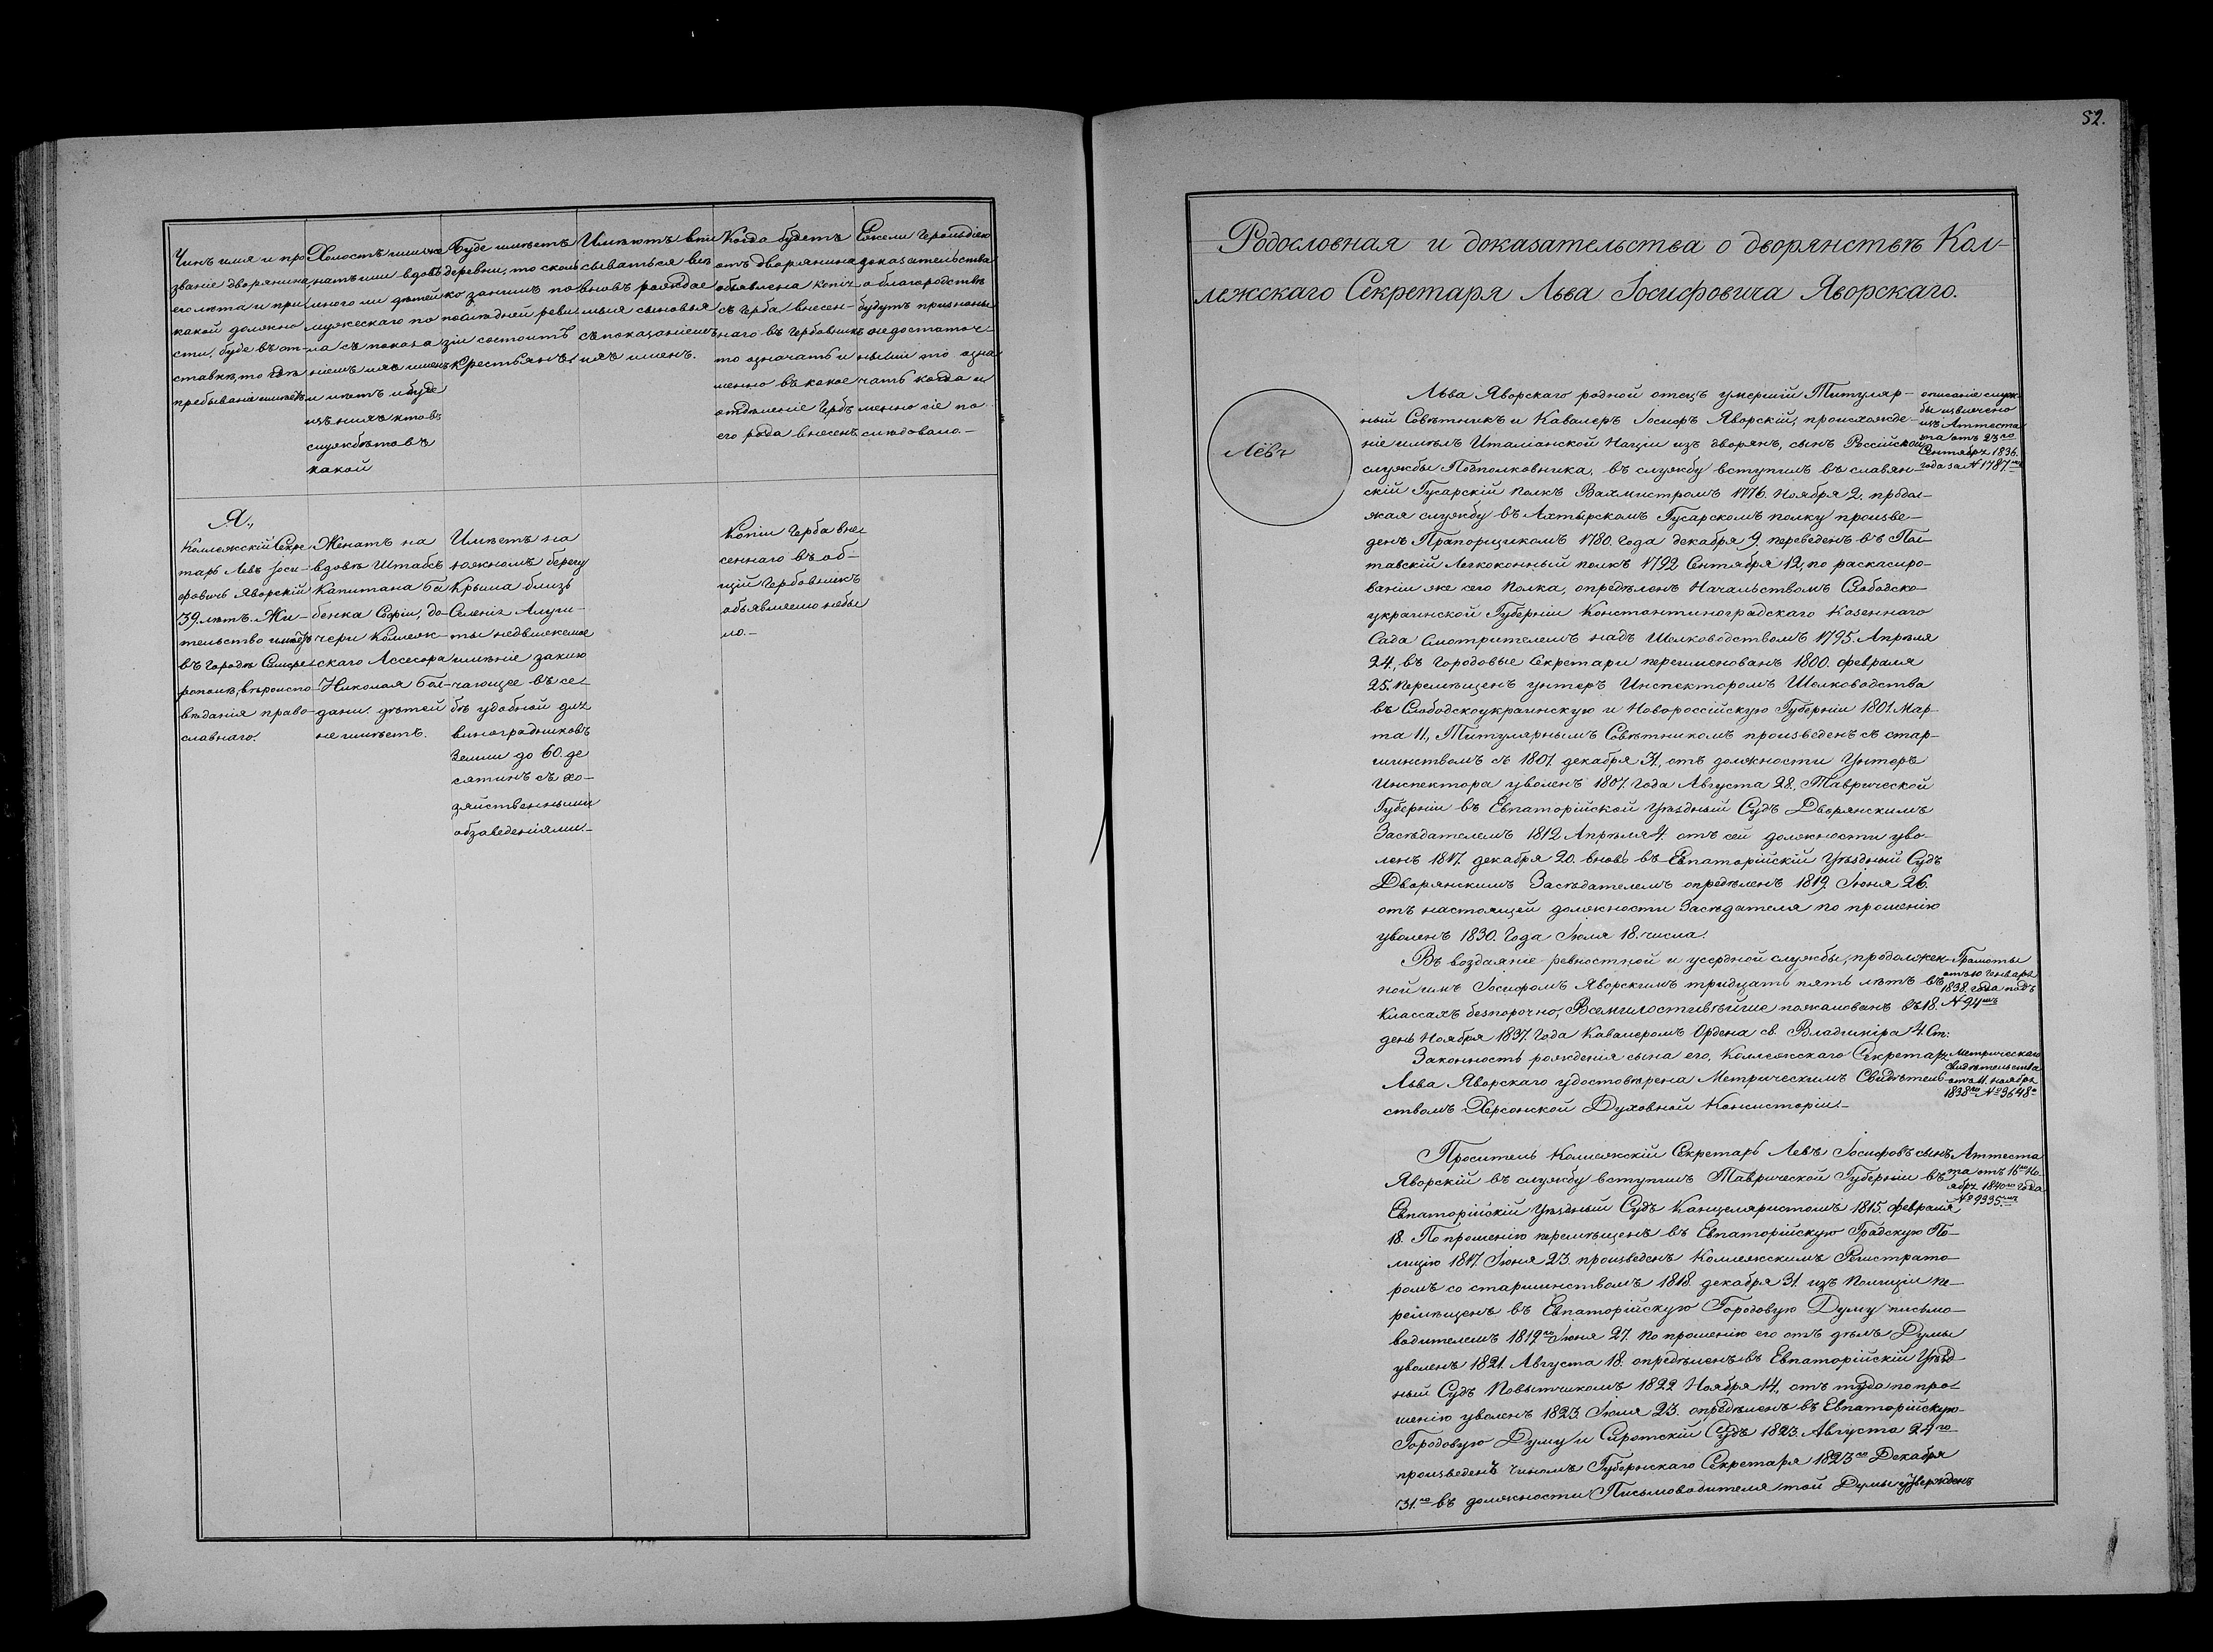 52.
Чинъ имя и про
званіе дворянина
его лѣта и при
какой должно
сти, буде въ от-
ставкѣ, то гдѣ
пребываніе имѣетъ
Холостъ или же
натъ или вдовъ
много ли дѣтей
мужескаго по
ла съ показа
ніемъ ихъ именъ
и лѣтъ и буде
изъ нихъ кто въ
службѣ то въ
какой
Буде имѣетъ
деревни, то сколь
ко за нимъ по
послѣдней реви
зіи состоитъ
крестьянъ
Имѣютъ впи
сываться всѣ
вновь раждае
мыя сыновья
съ показаніемъ
ихъ именъ.
Когда будетъ
отъ дворянина
объявлена копія
съ герба внесен-
наго въ Гербовникъ
то означать и
менно въ какое
отдѣленіе Гербъ
его рода внесенъ
Ежели Герольдіею
доказательства
о благородствѣ
будутъ признаны
недостаточ-
ными то озна
чать когда и
менно сіе по
слѣдовало.-
Я.,
Коллежскій Секре
тарь Левъ Іоси-
фовичъ Яворскій
39. лѣтъ. Жи-
тельство имѣетъ
въ городѣ Симфе-
рополѣ, вѣроиспо-
вѣданія право-
славнаго.
Женатъ на
вдовѣ Штабсъ
Капитана Ба
бенка Софіи, до-
чери Коллеж-
скаго Ассесора
Николая Бал-
дани. дѣтей
не имѣетъ.
Имѣетъ на
южномъ берегу
Крыма близь
Селенія Алуш-
ты недвижемое
имѣніе заклю
чающее въ се-
бѣ удобной для
виноградниковъ
Земли до 60. де
сятинъ съ хо-
зяйственными
обзаведеніями.-
Копіи герба вне
сеннаго въ об-
щій Гербовникъ
объявляемо небы
ло.-
Родословная и доказательства о дворянствѣ Кол-
лежскаго Секретаря Льва Іосифовича Яворскаго.
Левъ
Льва Яворскаго родной отецъ умершій Титуляр-
ный Совѣтникъ и Кавалеръ Іосифъ Яворскій, происхожде-
ніе имѣлъ Италіанской Націи изъ дворянъ, сынъ Россійской
службы Подполковника, въ службу вступилъ въ славян-
скій Гусарскій полкъ Вахмистромъ 1776. Ноября 2. продол-
жая службу въ Ахтырскомъ Гусарскомъ полку произве-
денъ Прапорщикомъ 1780. Года декабря 9. переведенъ въ Пол-
тавскій Легкоконный полкъ 1792 Сентября 12, по раскасиро-
ваніи же сего полка, опредѣленъ Начальствомъ Слободско-
украинской Губерніи Константиноградскаго Казеннаго
Сада Смотрителемъ надъ Шелководствомъ 1795. Апрѣля
24., въ городовые Секретари переименованъ 1800. февраля
25. перемѣщенъ унтеръ Инспекторомъ Шелководства
въ Слободскоукраинскую и Новороссійскую Губерніи 1801. Мар-
та 11., Титулярнымъ Совѣтникомъ произведенъ съ стар-
шинствомъ съ 1801. декабря 31., отъ должности Унтеръ
Инспектора уволенъ 1807. года Августа 28., Таврической
Губерніи въ Евпаторійской Уѣздный Судъ Дворянскимъ
Засѣдателемъ 1812 Апрѣля 4. отъ сей должности уво-
ленъ 1817. декабря 20. вновь въ Евпаторійскій Уѣздный Судъ
Дворянскимъ Засѣдателемъ опредѣленъ 1819. Іюня 26.
отъ настоящей должности Засѣдателя по прошенію
уволенъ 1830. Года Іюля 18. числа.
Въ воздаяніе ревностной и усердной службы, продолжен-
ной имъ Іосифомъ Яворскимъ тридцать пять лѣтъ въ
классахъ безпорочно, Всемилостивѣйше пожалованъ въ 18.
день Ноября 1837. Года Кавалеромъ Ордена св. Владиміра 4. Ст:
Законность рожденія сына его, Коллежскаго Секретаря
Льва Яворскаго удостовѣрена Метрическимъ Свидѣтель-
ствомъ Херсонской Духовной Консисторіи.-
Проситель Коллежскій Секретарь Левъ Іосифовъ сынъ
Яворскій въ службу вступилъ Таврической Губерніи въ
Евпаторійскій Уѣздный Судъ Канцеляристомъ 1815. февраля
18. По прошенію перемѣщенъ въ Евпаторійскую Градскую По-
лицію 1817. Іюня 23. произведенъ Коллежскимъ Регистрато-
ромъ со старшинствомъ 1818. декабря 31. изъ Полиціи пе-
ремѣщенъ въ Евпаторійскую Городовую Думу письмо-
водителемъ 1819го Іюня 27. по прошенію его отъ дѣлъ Думы
уволенъ 1821. Августа 18. опредѣленъ въ Евпаторійскій Уѣзд-
ный Судъ Повытчикомъ 1822 Ноября 14., отъ туда по про-
шенію уволенъ 1823. Іюля 23. опредѣленъ въ Евпаторійскую
Городовую Думу и Сиротскій Судъ 1823. Августа 24го
произведенъ чиномъ Губернскаго Секретаря 1823го Декабря
31.го въ должности Письмоводителя той Думы утвержденъ
описаніе служ-
бы извлечено
изъ Аттеста
та отъ 23го
Сентября 1836.
года за № 1787мъ
Грамоты
отъ 10 Генваря
1838. года подъ
№ 94мъ
Метрическаго
свидѣтельства
отъ 11. ноября
1838го № 3648о
Аттеста
та отъ 16го Но-
ября 1840го года
№ 9335мъ